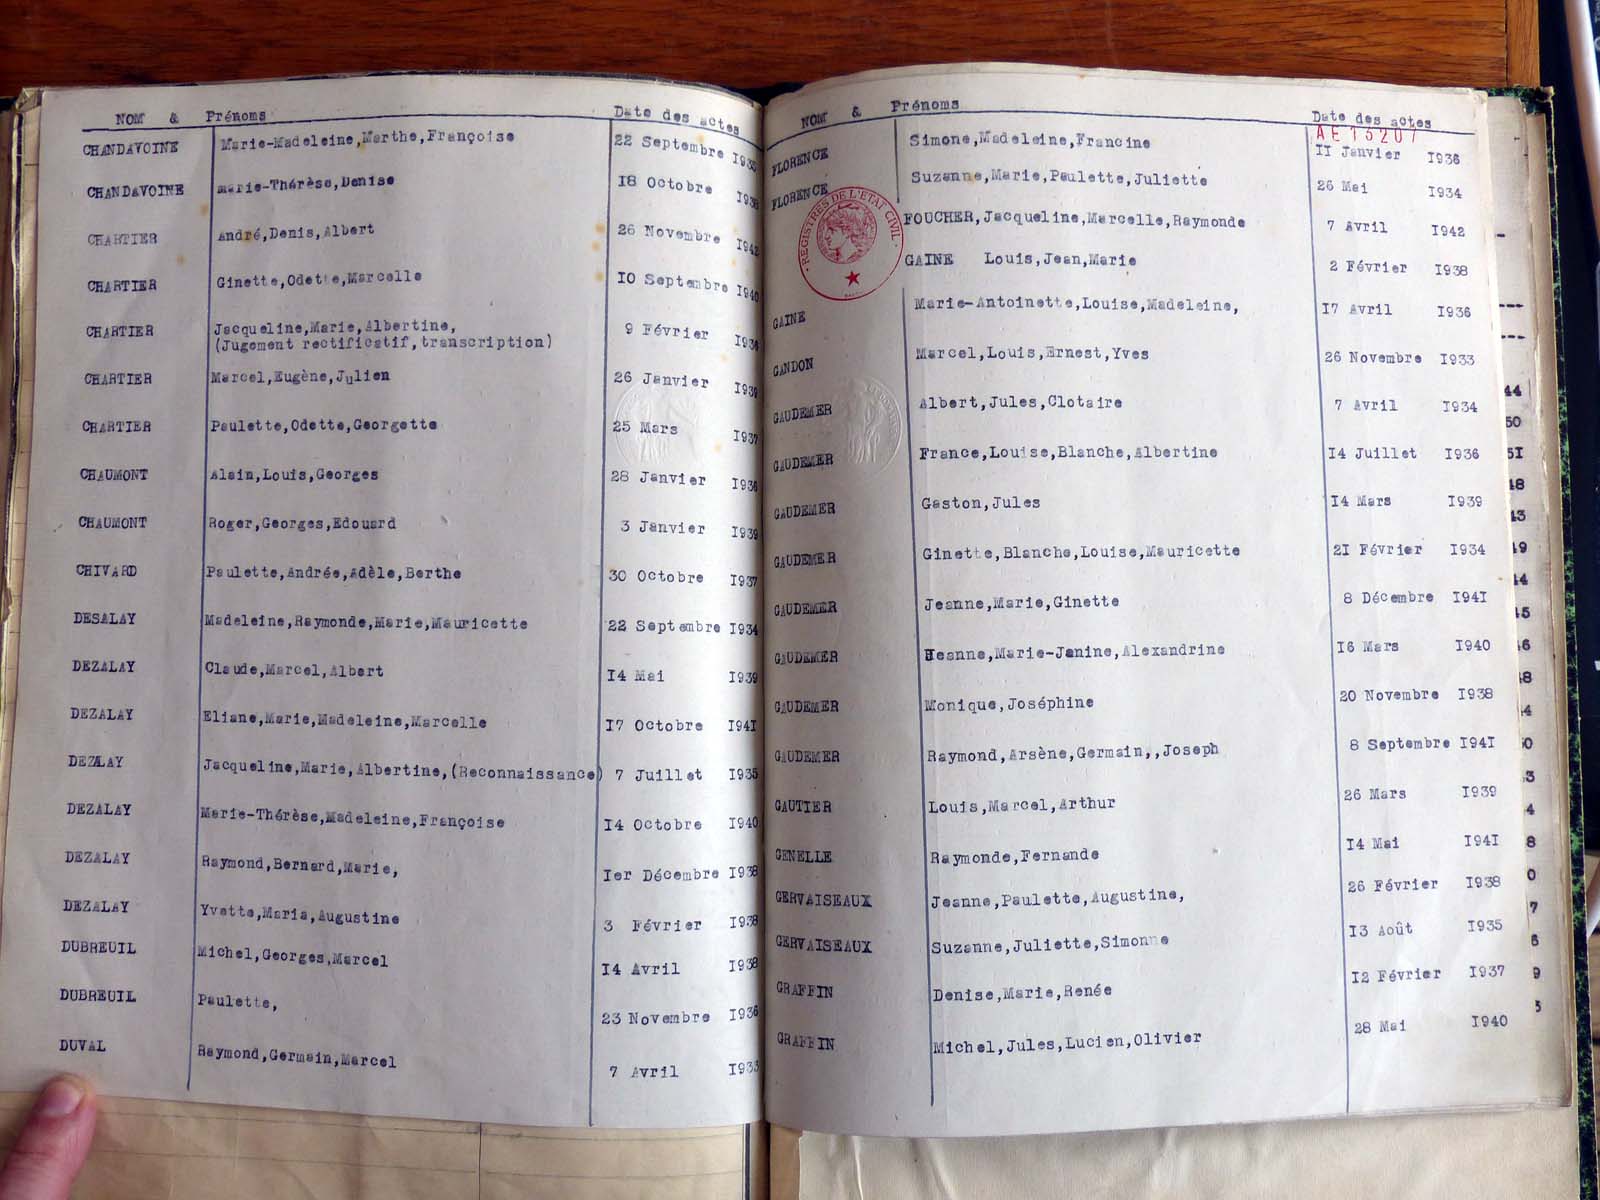 NOM & Prénoms Date des actes
CHANDAVOINE Marie-Madeleine,Marthe,Françoise 22 Septembre
CHANDAVOINE Marie-Thérèse,Denise 18 Octobre
CHARTIER André,Denis,Albert 26 Novembre 1942
CHARTIER Ginette,Odette,Marcelle 10 Septembre 1940
CHARTIER Jacqueline,Marie,Albertine, 9 Février
(Jugement rectificatif,transcription)
CHARTIER Marcel,Eugène,Julien 26 Janvier 1939
CHARTIER Paulette,Odette,Georgette 25 Mars 1937
CHAUMONT Alain,Louis,Georges 28 Janvier 1936
CHAUMONT Roger,Georges,Edouard 3 Janvier 1939
CHIVARD Paulette,Andrée,Adèle,Berthe 30 Octobre 1937
DESALAY Madeleine,Raymonde,Marie,Mauricette 22 Septembre 1934
DEZALAY Claude,Marcel,Albert 14 Mai 1939
DEZALAY Eliane,Marie,Madeleine,Marcelle 17 Octobre 1941
DEZALAY Jacqueline,Marie,Albertine,(Reconnaissance) 7 Juillet 1935
DEZALAY Marie-Thérèse,Madeleine,Françoise 14 Octobre 1940
DEZALAY Raymond,Bernard,Marie, 1er Décembre 1938
DEZALAY Yvette,Maria,Augustine 3 Février 1938
DUBREUIL Michel,Georges,Marcel 14 Avril 1938
DUBREUIL Paulette, 23 Novembre 1936
DUVAL Raymond,Germain,Marcel 7 Avril
NOM & Prénoms Date des actes
AE15207
FLORENCE Simone,Madeleine,Francine 11 Janvier 1936
FLORENCE Suzanne,Marie,Paulette,Juliette 26 Mai 1934
REGISTRES DE L'ETAT CIVIL
FOUCHER,Jacqueline,Marcelle,Raymonde 7 Avril 1942
GAINE Louis,Jean,Marie 2 Février 1938
GAINE Marie-Antoinette,Louise,Madeleine, 17 Avril 1936
GANDON Marcel,Louis,Ernest,Yves 26 Novembre 1933
GAUDEMER Albert,Jules,Clotaire 7 Avril 1934
GAUDEMER France,Louise,Blanche,Albertine 14 Juillet 1936
GAUDEMER Gaston,Jules 14 Mars 1939
GAUDEMER Ginette,Blanche,Louise,Mauricette 21 Février 1934
GAUDEMER Jeanne,Marie,Ginette 8 Décembre 1941
GAUDEMER Jeanne,Marie-Janine,Alexandrine 16 Mars 1940
GAUDEMER Monique,Joséphine 20 Novembre 1938
GAUDEMER Raymond,Arsène,Germain,,Joseph 8 Septembre 1941
GAUTIER Louis,Marcel,Arthur 26 Mars 1939
GENELLE Raymonde,Fernande 14 Mai 1941
GERVAISEAUX Jeanne,Paulette,Augustine, 26 Février 1938
GERVAISEAUX Suzanne,Juliette,Simonne 13 Août 1935
GRAFFIN Denise,Marie,Renée 12 Février 1937
GRAFFIN Michel,Jules,Lucien,Olivier 28 Mai 1940